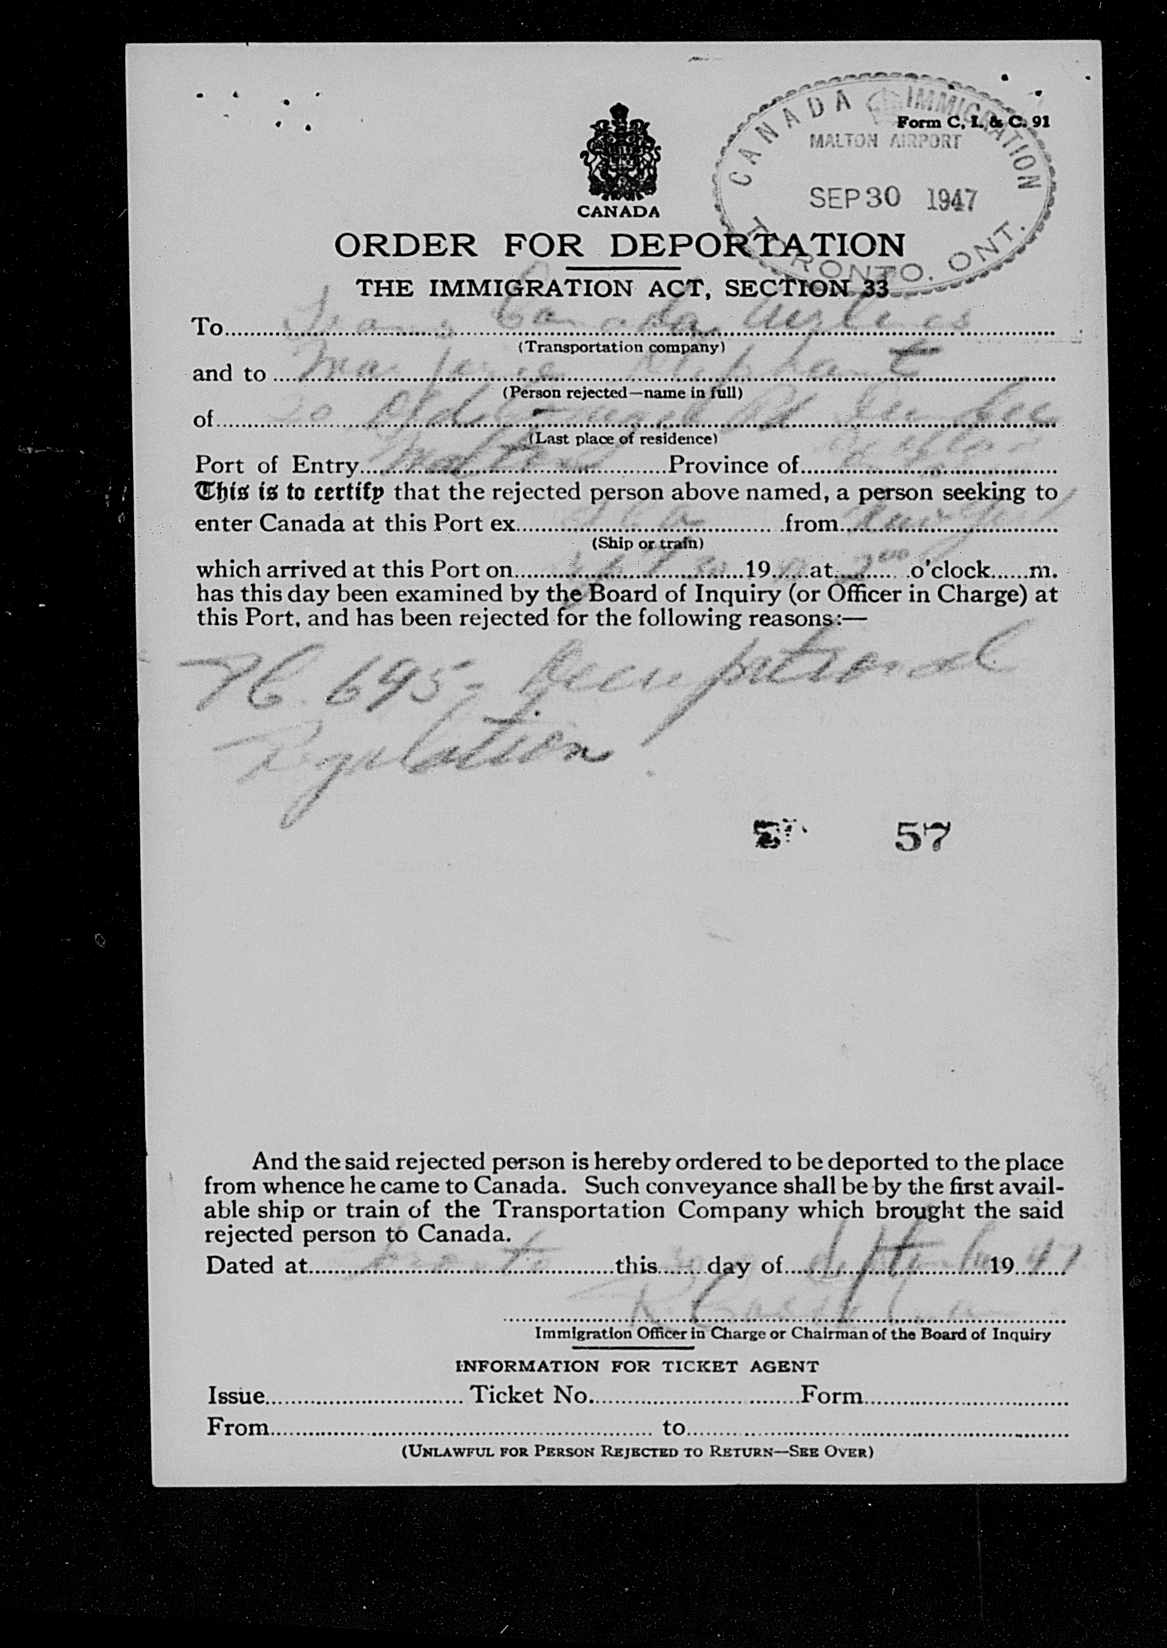 CANADA IMMIGRATION
Form C. I. & C. 91
MALTON AIRPORT
SEP 30 1947
TORONTO, ONT.
CANADA
ORDER FOR DEPORTATION
THE IMMIGRATION ACT, SECTION 33
To Trans Canada Airlines
(Transportation company)
and to Marjorie
(Person rejected—name in full)
of
(Last place of residence)
Port of Entry Malton Province of
This is to certify that the rejected person above named, a person seeking to
enter Canada at this Port ex TCA from New York
(Ship or train)
which arrived at this Port on Sept 30 19 at 2 00 o'clock m.
has this day been examined by the Board of Inquiry (or Officer in Charge) at
this Port, and has been rejected for the following reasons:—
PC 695, Occupational
Regulation
57
And the said rejected person is hereby ordered to be deported to the place
from whence he came to Canada. Such conveyance shall be by the first avail-
able ship or train of the Transportation Company which brought the said
rejected person to Canada.
Dated at Toronto this 30 day of September 19 47
Immigration Officer in Charge or Chairman of the Board of Inquiry
INFORMATION FOR TICKET AGENT
Issue Ticket No. Form
From to
(UNLAWFUL FOR PERSON REJECTED TO RETURN—SEE OVER)